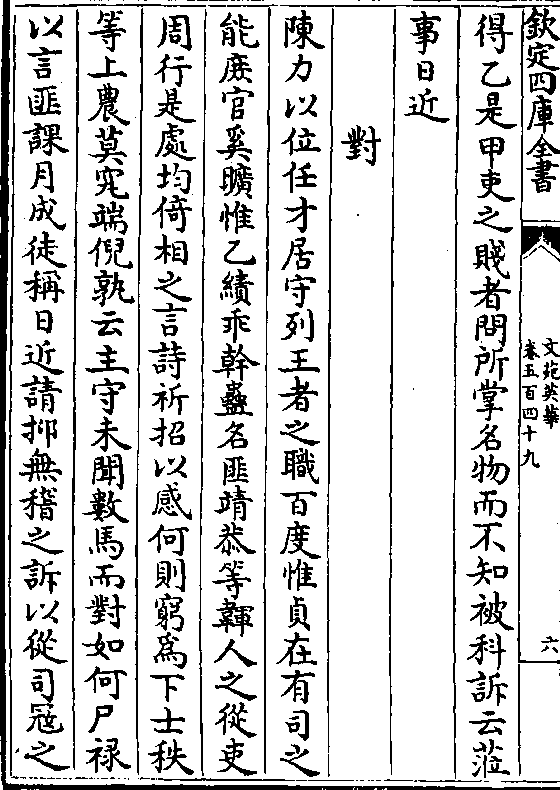 欽定四庫全書
文苑英華
卷五百四十九
六
得乙是甲吏之賤者問所掌名物而不知被科訴云蒞
事日近
對
陳力以位任才居守列王者之職百度惟貞在有司之
能庶官奚曠惟乙績乖幹蠱名匪靖恭等韗人之從吏
周行是處均倚相之言詩祈招以感何則窮為下士秩
等上農莫究端倪孰云主守未聞數馬而對如何尸禄
以言匪課月成徒稱日近請抑無稽之訴以從司寇之